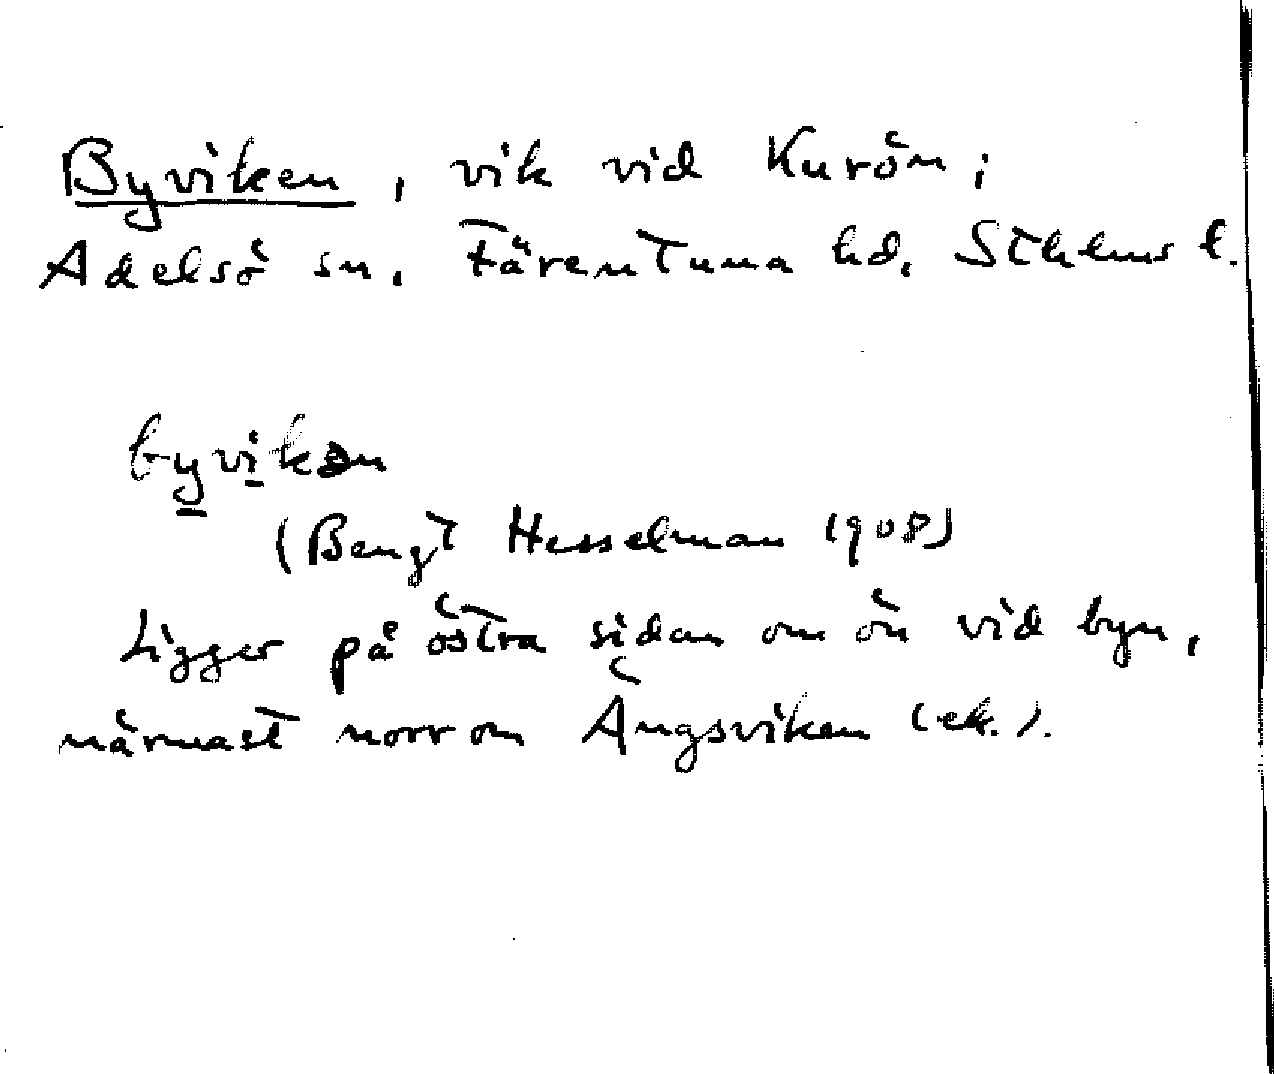 Byviken, vik vid Kurön;
Adelsö sn, Färentuna hd, Sthlms l.
byvikən
(Bengt Hesselman 1908)
Ligger på östra sidan om ön vid byn,
närmast norr om Ängsviken (ek.).